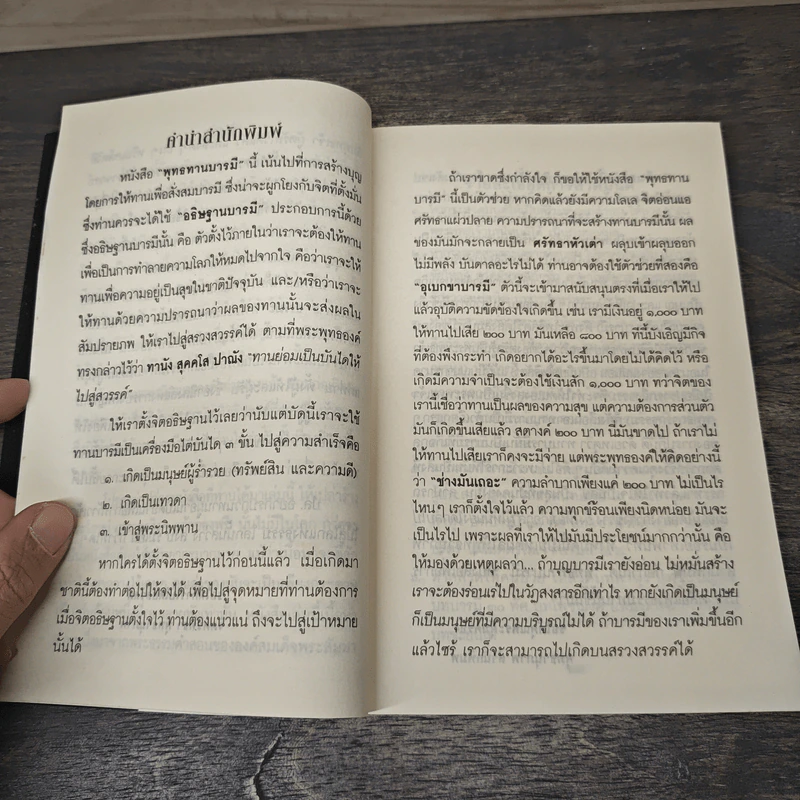 คำนำสำนักพิมพ์
หนังสือ "พุทธทานบารมี" นี้ เน้นไปที่การสร้างบุญ
โดยการให้ทานเพื่อสั่งสมบารมี ซึ่งน่าจะผูกโยงกับจิตที่ตั้งมั่น
ซึ่งท่านควรจะได้ใช้ "อธิษฐานบารมี" ประกอบการนี้ด้วย
ซึ่งอธิษฐานบารมีนั้น คือ ตัวตั้งไว้ภายในว่าเราจะต้องให้ทาน
เพื่อเป็นการทำลายความโลภให้หมดไปจากใจ คือว่าเราจะให้
ทานเพื่อความอยู่เป็นสุขในชาติปัจจุบัน และ/หรือว่าเราจะ
ให้ทานด้วยความปรารถนาว่าผลของทานนั้นจะส่งผลใน
สัมปรายภพ ให้เราไปสู่สรวงสวรรค์ได้ ตามที่พระพุทธองค์
ทรงกล่าวไว้ว่า ทานัง สุคคโส ปาณัง "ทานย่อมเป็นบันไดให้
ไปสู่สวรรค์"
ให้เราตั้งจิตอธิษฐานไว้เลยว่านับแต่บัดนี้เราจะใช้
ทานบารมีเป็นเครื่องมือไต่บันได ๓ ขั้น ไปสู่ความสำเร็จคือ
๑. เกิดเป็นมนุษย์ผู้ร่ำรวย (ทรัพย์สิน และความดี)
๒. เกิดเป็นเทวดา
๓. เข้าสู่พระนิพพาน
หากใครได้ตั้งจิตอธิษฐานไว้ก่อนนี้แล้ว เมื่อเกิดมา
ชาตินี้ต้องทำต่อไปให้จงได้ เพื่อไปสู่จุดหมายที่ท่านต้องการ
เมื่อจิตอธิษฐานตั้งใจไว้ ท่านต้องแน่วแน่ ถึงจะไปสู่เป้าหมาย
นั้นได้
ถ้าเราขาดซึ่งกำลังใจ ก็ขอให้ใช้หนังสือ "พุทธทาน
บารมี" นี้เป็นตัวช่วย หากคิดแล้วยังมีความโลเล จิตอ่อนแอ
ศรัทธาแผ่วปลาย ความปรารถนาที่จะสร้างทานบารมีนั้น ผล
ของมันมักจะกลายเป็น ศรัทธาหัวเต่า ผลุบเข้าผลุบออก
ไม่มีพลัง บันดาลอะไรไม่ได้ ท่านอาจต้องใช้ตัวช่วยที่สองคือ
"อุเบกขาบารมี" ตัวนี้จะเข้ามาสนับสนุนตรงที่เมื่อเราให้ไป
แล้วอุบัติความขัดข้องใจเกิดขึ้น เช่น เรามีเงินอยู่ ๑,๐๐๐ บาท
ให้ทานไปเสีย ๒๐๐ บาท มันเหลือ ๘๐๐ บาท ทีนี้บังเอิญมีกิจ
ที่ต้องพึงกระทำ เกิดอยากได้อะไรขึ้นมาโดยไม่ได้คิดไว้ หรือ
เกิดมีความจำเป็นจะต้องใช้เงินสัก ๑,๐๐๐ บาท ทว่าจิตของ
เรานี้เชื่อว่าทานเป็นผลของความสุข แต่ความต้องการส่วนตัว
มันก็เกิดขึ้นเสียแล้ว สตางค์ ๒๐๐ บาท นี่มันขาดไป ถ้าเราไม่
ให้ทานไปเสียเราก็คงจะมีจ่าย แต่พระพุทธองค์ให้คิดอย่างนี้
ว่า "ช่างมันเถอะ" ความลำบากเพียงแค่ ๒๐๐ บาท ไม่เป็นไร
ไหนๆ เราก็ตั้งใจไว้แล้ว ความทุกข์ร้อนเพียงนิดหน่อย มันจะ
เป็นไรไป เพราะผลที่เราให้ไปมันมีประโยชน์มากกว่านั้น คือ
ให้มองด้วยเหตุผลว่า... ถ้าบุญบารมีเรายังอ่อน ไม่หมั่นสร้าง
เราจะต้องร่อนเร่ไปในวัฏสงสารอีกเท่าไร หากยังเกิดเป็นมนุษย์
ก็เป็นมนุษย์ที่มีความบริบูรณ์ไม่ได้ ถ้าบารมีของเราเพิ่มขึ้นอีก
แล้วไซร้ เราก็จะสามารถไปเกิดบนสรวงสวรรค์ได้